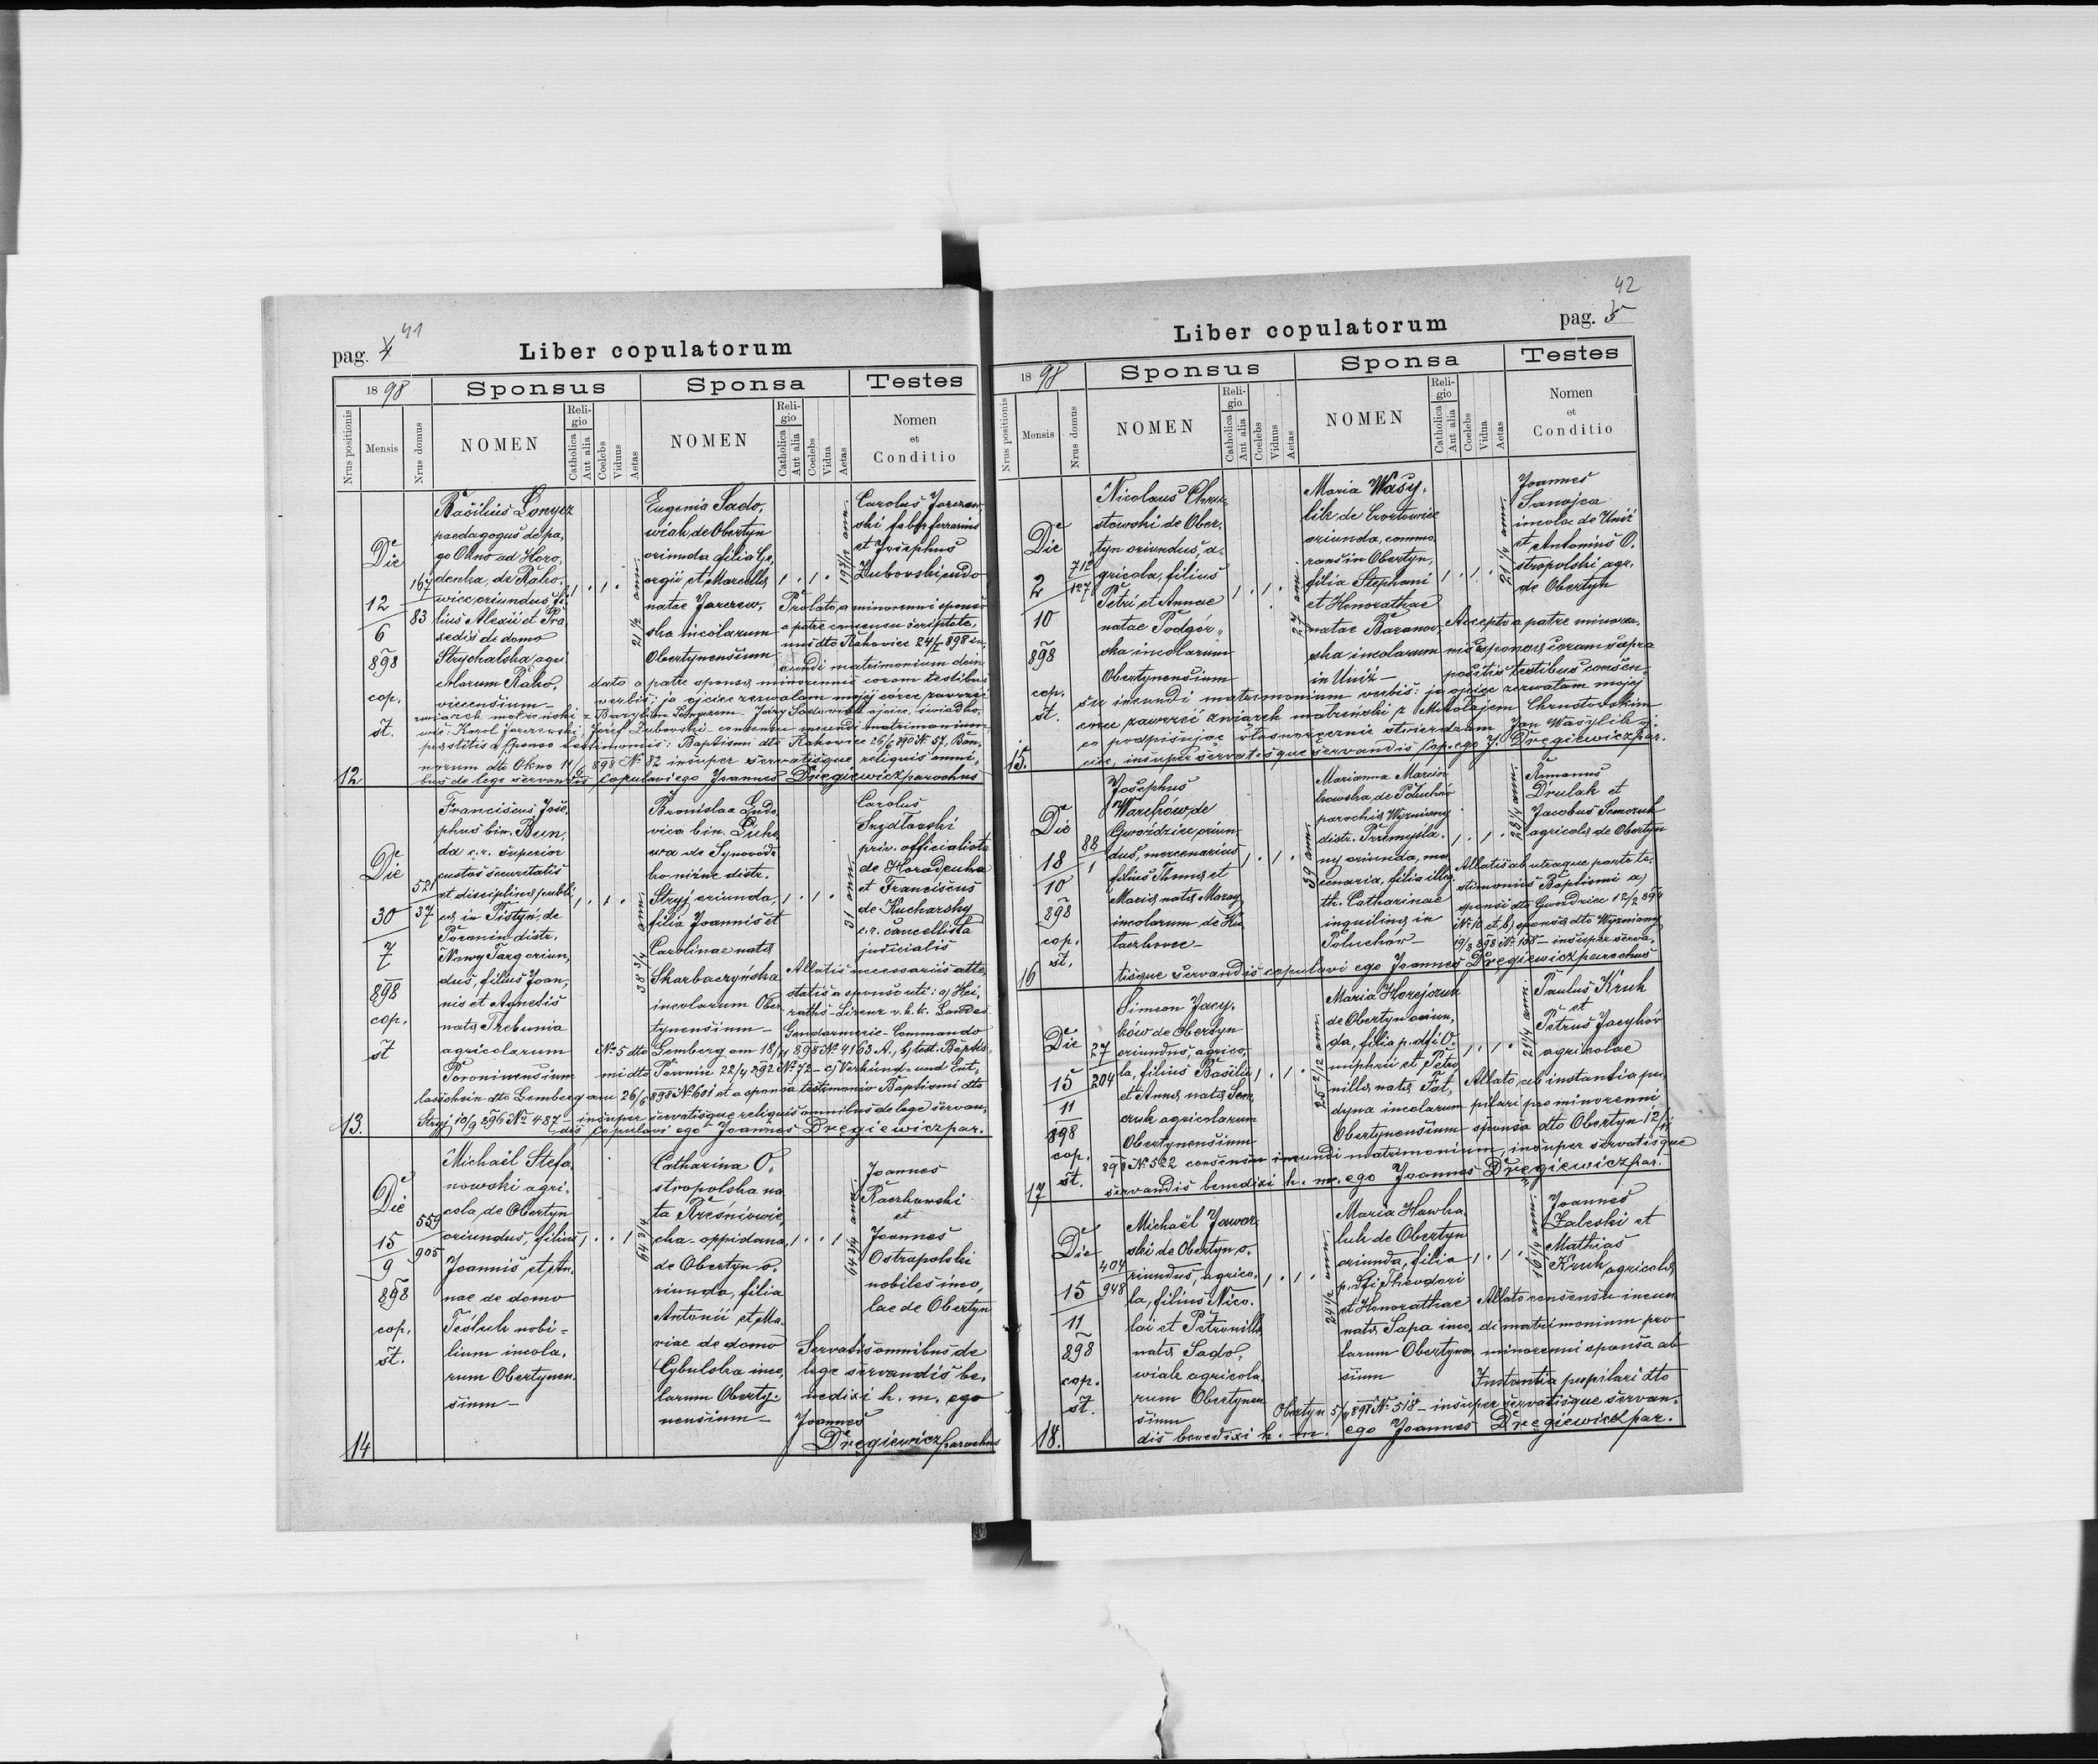 pag. 4 41
Liber copulatorum
1898
Sponsus
Sponsa
Testes
Nrus positionis
Mensis
Nrus domus
NOMEN
Religio
Catholica
Aut alia
Coelebs
Viduus
Aetas
NOMEN
Religio
Catholica
Aut alia
Coelebs
Vidua
Aetas
Nomen
et
Conditio
12
Die
12
6
898
cop.
st.
167
83
Basilius Łonycz
paedagogus de pa,
go Okno ad Horo,
denka, de Rako,
wiec oriundus fi
lius Alexii et Pra
xedis de domo
Strychalska agri
colarum Rako,
viecensium
1 . 1 .
21 1/2 ann.
Eugenia Sado,
wiak, de Obertyn
oriunda filia Ge,
orgii et Marcellae
natae Jarczew,
ska incolarum
Obertynensium
1 . 1 .
19 7/12 ann.
Carolus Jarczew
ski faber ferrarius
et Josephus
Zubowski
Prolato, a minorenni sponso
a patre consensu
dto Rakowiec 24/5 898 in,
eundi matrimonium dein
dato a patre sponsae minorennis coram testibus
verbis: ja ojciec zezwalam mojej córce zawrzeć
związek małżeński z Bazylim Łonyczem. Jerzy Sadowiak ojciec, świadko,
wie: Karol Jarczewski, Józef Zubowski consensu ineundi matrimonium
a sponso testimoniis: Baptismi dto Rakowiec 26/5 898 No. 57, Ban,
norum dto Okno 11/6 898 No 82 insuper servatisque reliquis omni,
bus de lege servandis copulavi ego Joannes Dręgiewicz parochus
13.
Die
30
7
898
cop.
st
521
37
Franciscus Jose,
phus bin. Bun,
da c. r. superior
custos securitatis
et disciplinae publi
cae in Pistyń, de
Poronin distr.
Nowy Targ oriun,
dus, filius Joan,
nis et Agnetis
natae Trebunia
agricolarum
Poroninensium
1 . 1 .
38 3/4 ann.
Bronislaa Ludo
vica bin.
de Synovódz
ko niżne distr.
Stryj oriunda,
filia Joannis et
Carolinae natae
Skarbaczyńska
incolarum Ober
tynensium
1 . 1 .
31 ann.
Carolus
Szydłowski
priv. officialista
de Horodenka
et Franciscus
de Kucharsky
c. r. cancellista
judicialis
Allatis necessariis atte,
statis a sponso uti: a) Hei,
raths-Lizenz v. k. k. Landes
Gendarmerie-Commando
No 5 dto Lemberg am 18/ 898 No 4163 A., b) test. Baptis,
mi dto Poronin 22/4 892 No 72 - c) Verkünd- und Ent,
lasschein dto Lemberg am 26/6 898 No 601 et a sponsa testimonio Baptismi dto
Stryj 10/9 896 No 487 - insuper servatisque reliquis omnibus de lege servan,
dis copulavi ego Joannes Dręgiewicz par.
14
Die
15
9
898
cop.
st.
559
905
Michaël Stefa,
nowski agri,
cola, de Obertyn
oriundus, filius
Joannis et An,
nae de domo
Teśluk nobi=
lium incola,
rum Obertynen,
sium
1 . . 1
64 3/4
Catharina O,
stropolska na
ta Krześniowie,
cka oppidana,
de Obertyn o,
riunda, filia
Antonii et Ma,
riae de domo
Cybulska inco,
larum Oberty=
nensium
1 . . 1
64 3/4 ann.
Joannes
Raczkowski
et
Joannes
Ostrapolski
nobiles inco,
lae de Obertyn
Servatis omnibus de
lege servandis be,
nedixi h. m. ego
Joannes
Dręgiewicz parochus
pag. 5 42
Liber copulatorum
1898
Sponsus
Sponsa
Testes
Nrus positionis
Mensis
Nrus domus
NOMEN
Religio
Catholica
Aut alia
Coelebs
Viduus
Aetas
NOMEN
Religio
Catholica
Aut alia
Coelebs
Vidua
Aetas
Nomen
et
Conditio
15.
Die
2
10
898
cop.
st.
712
127
Nicolaus Chru,
stowski de Ober,
tyn oriundus, a,
gricola, filius
Petri et Annae
natae Podgór,
ska incolarum
Obertynensium
1 . 1 .
27 ann.
Maria Wasy,
lik de Czortowiec
oriunda, commo
rans in Obertyn,
filia Stephani
et Honorathae
natae Baranow,
ska incolarum
in Uniż
1 . 1 .
21 1/4 ann.
Joannes
Sanojca
incola de Uniż
et Antonius O,
stropolski agr.
de Obertyn
Accepto a patre minoren,
nis sponsae coram supra
positis testibus consen,
su ineundi matrimonium verbis: ja ojciec zezwalam mojej
córce zawrzeć związek małżeński z Mikołajem Chrustowskim
co podpisując własnoręcznie stwierdzam Jan Wasylik oj,
ciec, insuper servatisque servandis cop. ego J. Dręgiewicz par.
16
Die
18
10
898
cop.
st.
88
1
Josephus
Warchów de
Gwoździec oriun,
dus, mercenarius
filius Thomae et
Mariae natae
incolarum de Ku
laczkowce
1 . 1 .
39 ann.
Marianna Marcin
kowska, de Poluchów
parochiae Wyzniany
distr. Przemyśla,
ny oriunda, mer,
cenaria, filia illeg.
th. Catharinae
inquilinae in
Poluchów
1 . 1 .
28 1/4 ann.
Romanus
Drulak et
Jacobus Semczuk
agricolae de Obertyn
Allatis ab utraque parte te,
stimoniis Baptismi a)
sponsi dto Gwoździec 12/2 894
No 10 et b) sponsae dto Wyzniany
19/8 898 No 138 - insuper serva,
tisque servandis copulavi ego Joannes Dręgiewicz parochus
17
Die
15
11
898
cop.
st.
27
204
Simeon Jacy,
ków de Obertyn
oriundus, agrico,
la, filius Basilii
et Annae natae Sem
czuk agricolarum
Obertynensium
1 . 1 .
25 2/12 ann.
Maria Horejczuk
de Obertyn oriun,
da, filia p. dfi O,
nuphrii et Petro
nillae natae Fat,
dyna incolarum
Obertynensium
1 . 1 .
21 1/4 ann.
Paulus Kruk
et
Petrus Jacyków
agricolae
Allato, ab instantia pu,
pilari pro minorenni
sponsa dto Obertyn 12/
898 No 522 consensu ineundi matrimonium, insuper servatisque
servandis benedixi h. m. ego Joannes Dręgiewicz par.
18.
Die
15
11
898
cop.
st.
404
948
Michaël Jawor
ski de Obertyn o,
riundus, agrico,
la, filius Nico,
lai et Petronillae
natae Sado,
wiak agricola,
rum Obertynen
sium
1 . 1 .
24 1/2 ann.
Maria Hawka
luk de Obertyn
oriunda, filia
p. dfi Theodori
et Honorathae
natae Sapa inco,
larum Obertynen,
sium
1 . 1 .
16 1/4 ann.
Joannes
Zaleski et
Mathias
Kruk agricolae
Allato consensu ineun
di matrimonium pro
minorenni sponsa ab
Instantia pupilari dto
Obertyn 5/ 898 No 518 - insuper servatisque servan,
dis benedixi h. m. ego Joannes Dręgiewicz par.